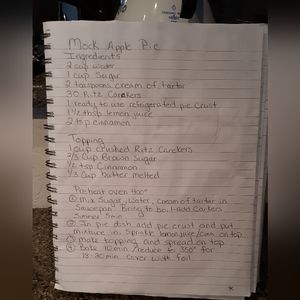 Mock Apple Pie
Ingredients
2 cup water
1 cup Sugar
2 teaspoons cream of tartar
30 Ritz Crackers
1 ready to use refrigerated pie crust
1 1/2 tbsp lemon juice
2 tsp cinnamon
Topping
1 cup crushed Ritz Crackers
2/3 cup Brown Sugar
1/2 tsp Cinnamon
1/3 cup butter melted
Preheat oven 400°
① Mix Sugar, Water, Cream of tartar in
Saucepan. Bring to boil - add
Simmer 5min
② In pie dish add pie crust and put
mixture in. Sprinkle lemon juice/Cinn. on top
③ Make topping and spread on top
④ Bake 10 min/reduce to 350° for
18-20 min. Cover with foil